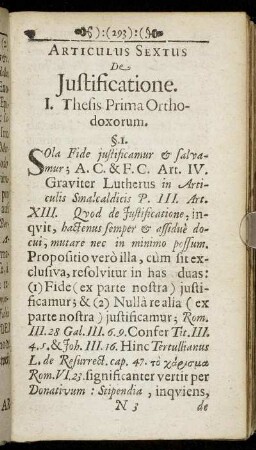 (§):(293):(§)
ARTICULUS SEXTUS
De
Justificatione.
I. Thesis Prima Ortho-
doxorum.
§.1.
SOla Fide justificamur & salva-
mur; A. C. & F. C. Art. IV.
Graviter Lutherus in Arti-
culis Smalcaldicis P. III. Art.
XIII. Qvod de Justificatione, in-
qvit, hactenus semper & assiduè do-
cui, mutare nec in minimo possum.
Propositio verò illa, cùm sit ex-
clusiva, resolvitur in has duas:
(1) Fide (ex parte nostra) justifi-
camur; & (2) Nullâ re aliâ (ex
parte nostra) justificamur; Rom.
III. 28 Gal. III. 6. 9. Confer Tit. III.
4. 5. & Joh. III. 16. Hinc Tertullianus
L. de Resurrect. cap. 47. τὸ χάρισμα
Rom. VI. 23. significanter vertit per
Donativum: Stipendia, inqviens,
N 3 de